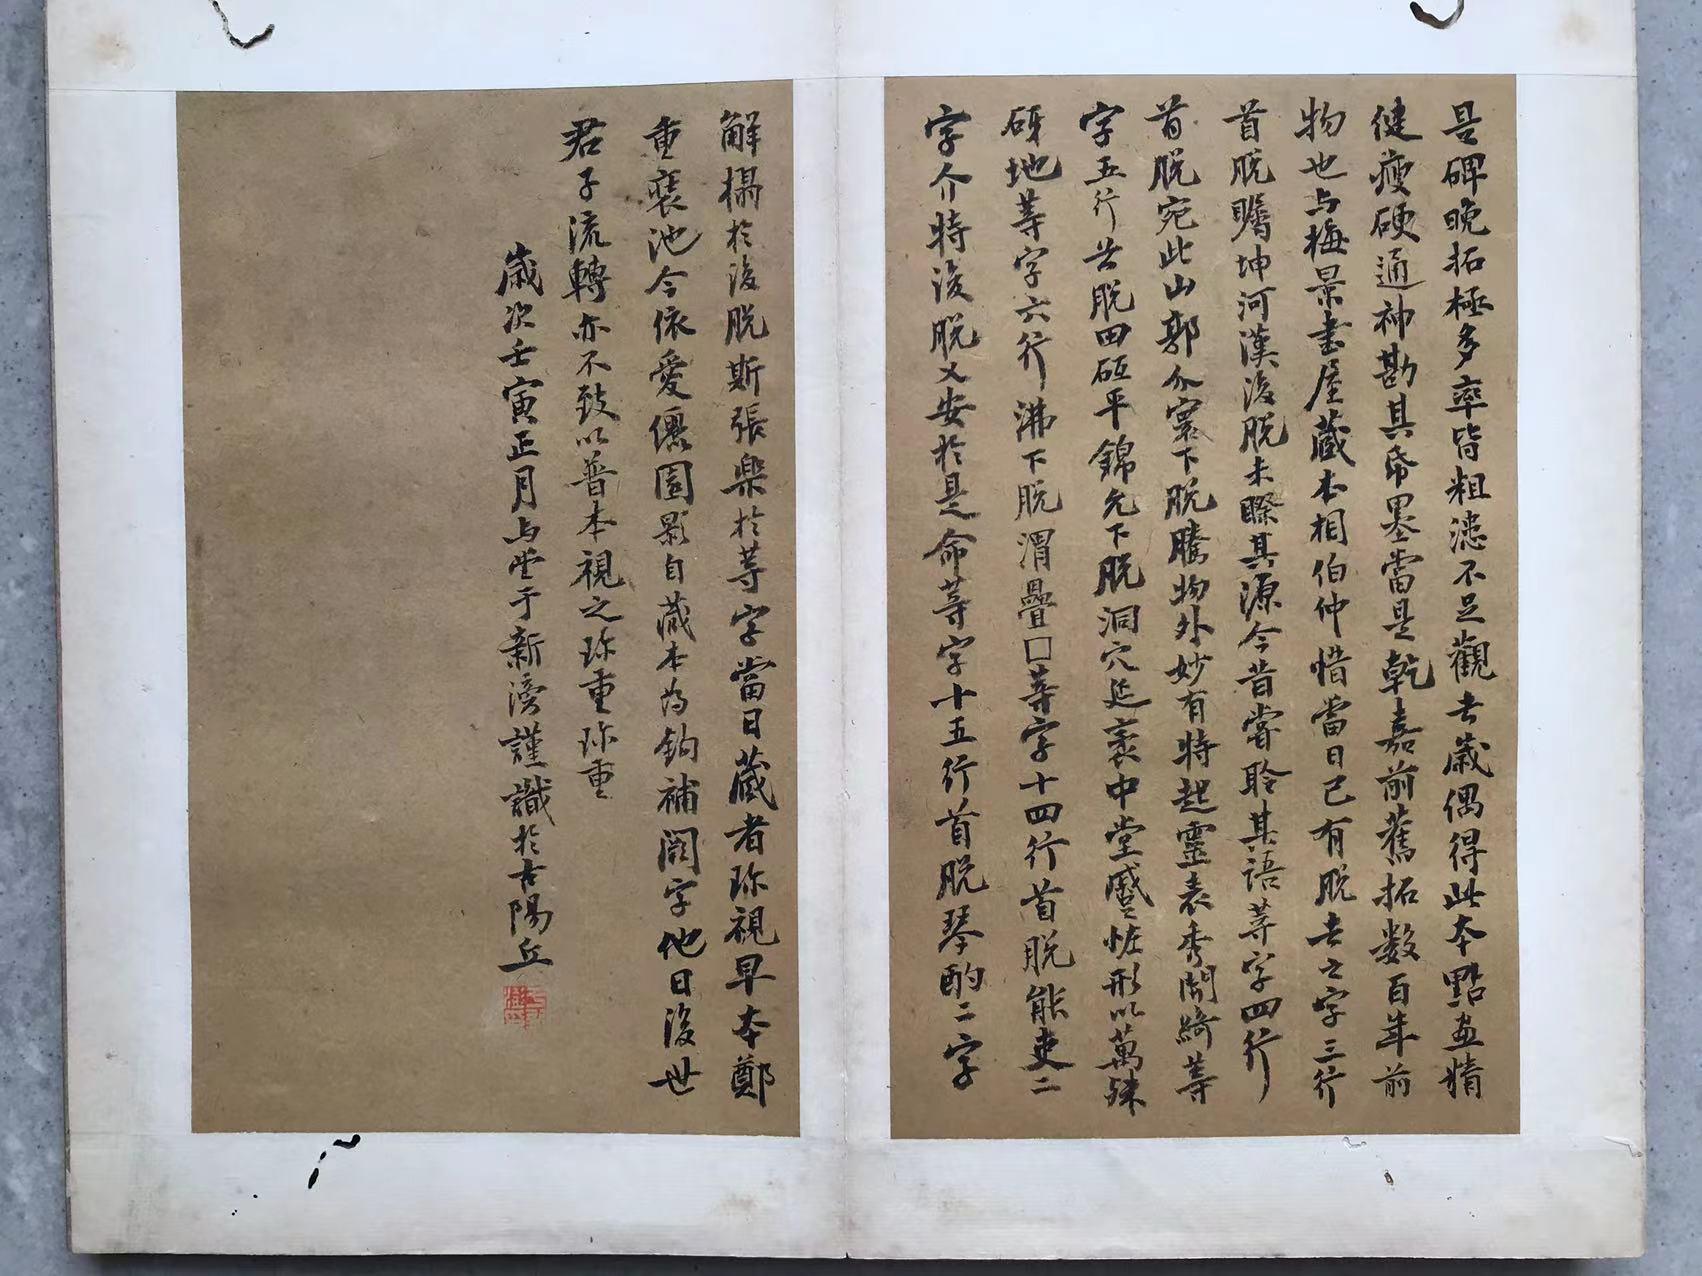 是碑晚拓極多率皆粗漶不足觀去歲偶得此本點畫精
健瘦硬通神勘其帋墨當是乾嘉前舊拓數百年前
物也与梅景書屋藏本相伯仲惜當日已有脱去之字三行
首脱矚坤河漢後脱未瞭其源今昔嘗聆其語等字四行
首脱宛此山郭介寰下脱騰物外妙有特起靈表秀開綺等
字五行首脱田砥平錦允下脱洞穴延袤中堂盛恠形以萬殊
砑地等字六行沸下脱渭疊□等字十四行首脱能吏二
字介特後脱乂安於是命等字十五行首脱琴酌二字
解榻於後脱斯張樂於等字當日藏者珎視早本鄭
重裝池今依愛儷園影自藏本為鈎補闕字他日後世
君子流轉亦不致以普本視之珎重珎重
歲次壬寅正月与堂于新滂謹識於古陽丘